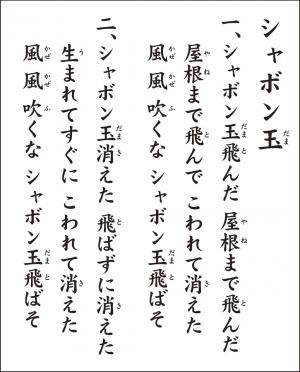 シャボン玉
一、シャボン玉飛んだ 屋根まで飛んだ
屋根まで飛んで こわれて消えた
風 風 吹くな シャボン玉飛ばそ
二、シャボン玉消えた 飛ばずに消えた
生まれてすぐに こわれて消えた
風 風 吹くな シャボン玉飛ばそ